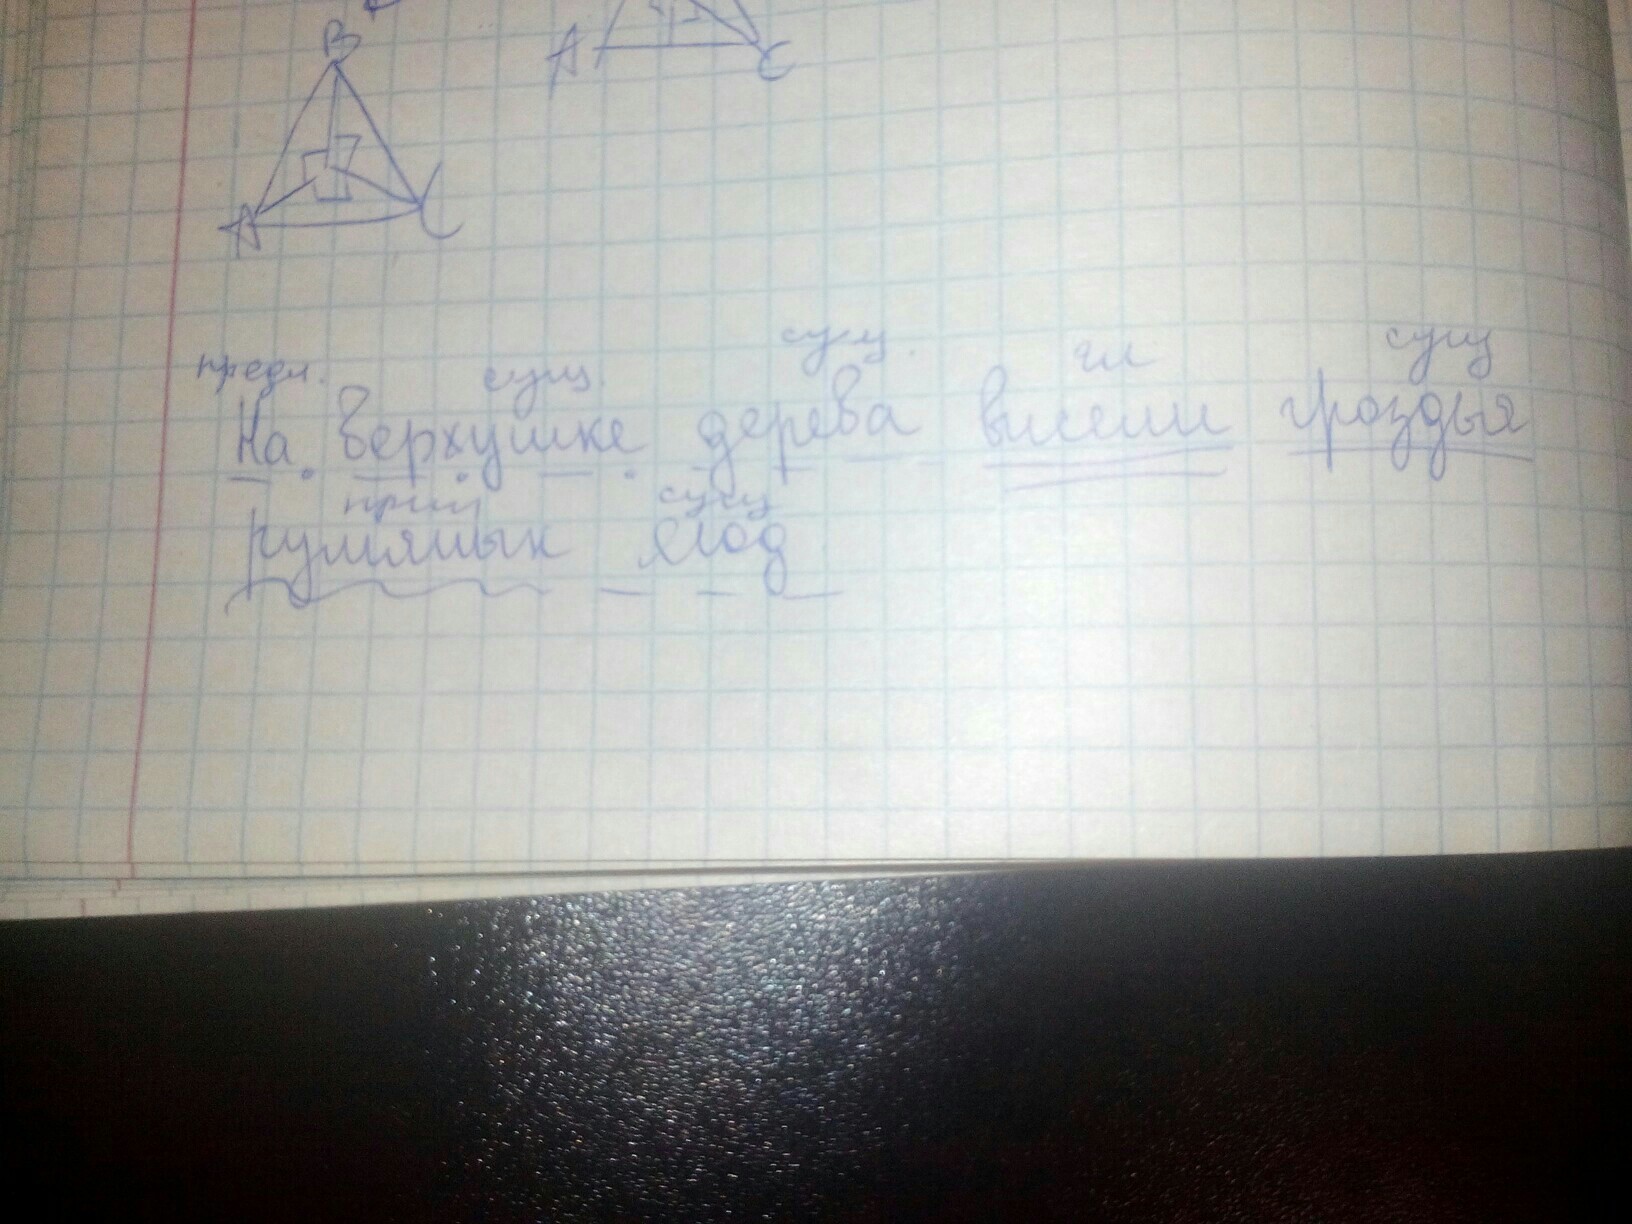 В
А С
А С
предл. сущ. сущ. гл сущ
На верхушке дерева висели гроздья
прил сущ
румяных ягод